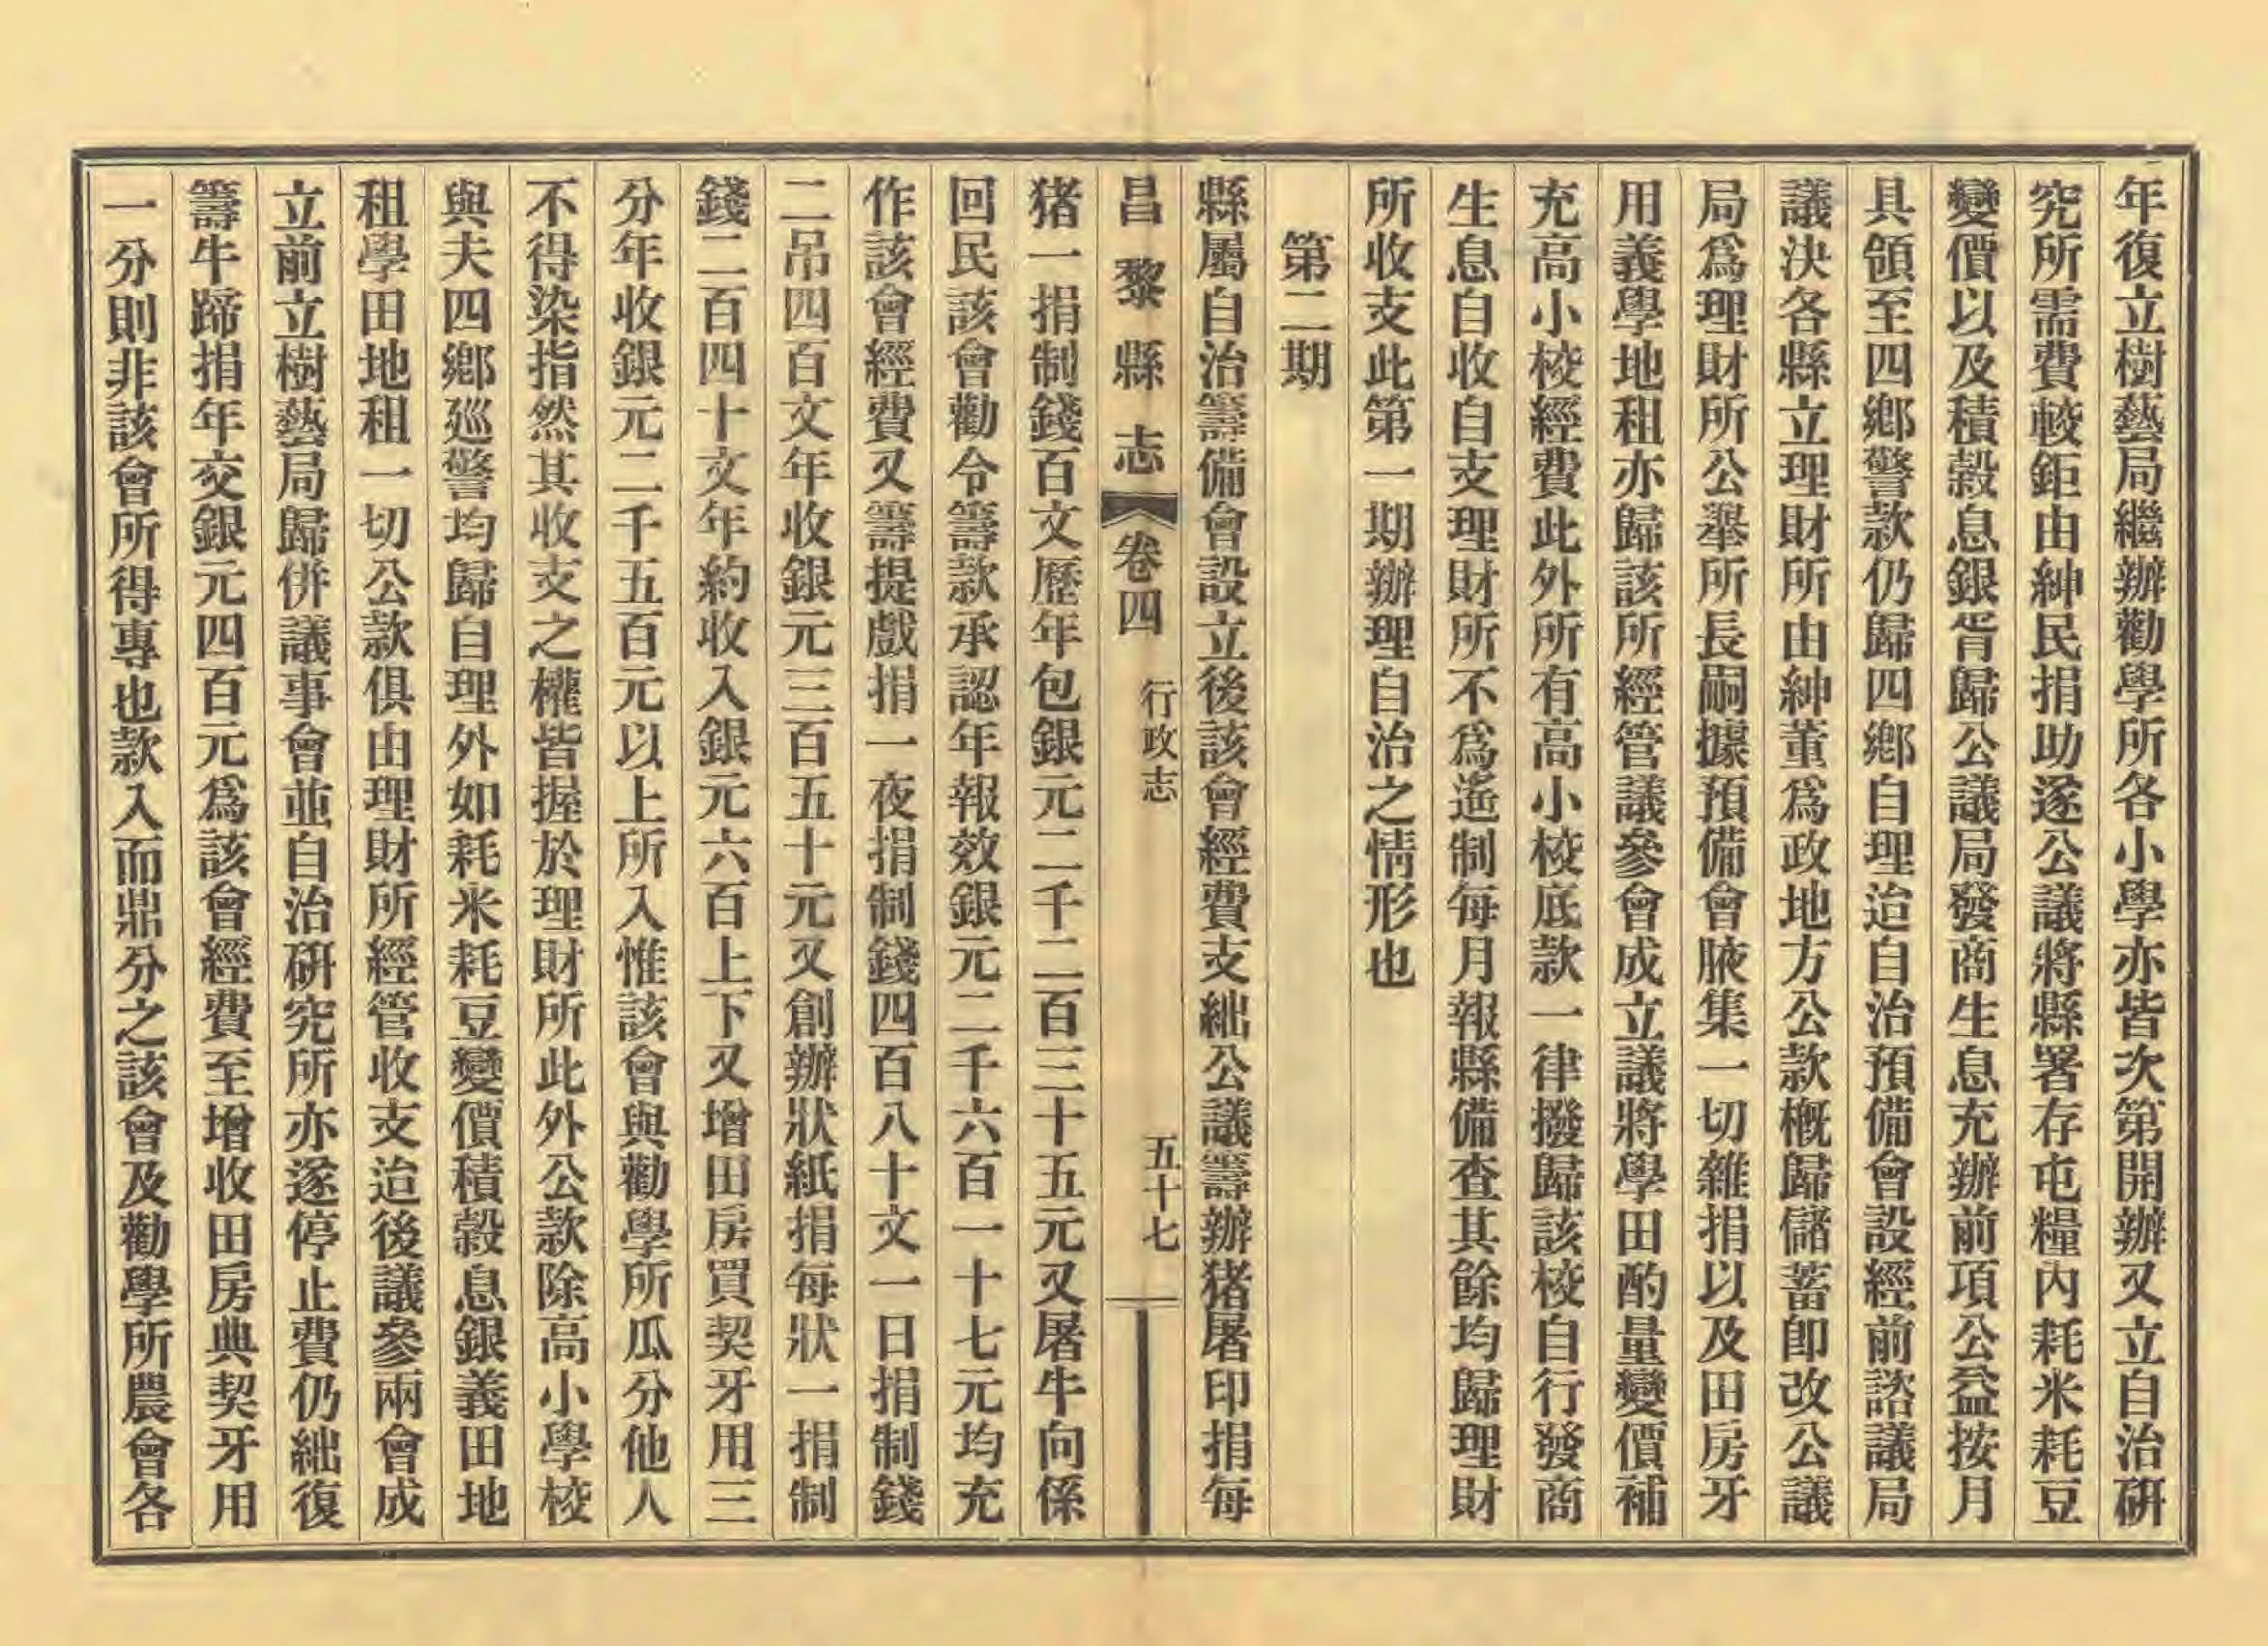 年復立樹藝局繼辦勸學所各小學亦皆次第開辦又立自治硏
究所需費較鉅由紳民捐助遂公議將縣署存屯糧內耗米耗豆
變價以及積穀息銀胥歸公議局發商生息充辦前項公益按月
具領至四鄉警款仍歸四鄉自理迨自治預備會設經前諮議局
議決各縣立理財所由紳董爲政地方公款槪歸儲蓄卽改公議
局爲理財所公舉所長嗣據預備會脥集一切雜捐以及田房牙
用義學地租亦歸該所經管議參會成立議將學田酌量變價補
充高小校經費此外所有高小校底款一律撥歸該校自行發商
生息自收自支理財所不爲遙制每月報縣備查其餘均歸理財
所收支此第一期辦理自治之情形也
第二期
縣屬自治籌備會設立後該會經費支絀公議籌辦猪屠印捐每
昌黎縣志 卷四 行政志 五十七
猪一捐制錢百文歷年包銀元二千二百三十五元又屠牛向係
回民該會勸令籌款承認年報效銀元二千六百一十七元均充
作該會經費又籌提戲捐一夜捐制錢四百八十文一日捐制錢
二吊四百文年收銀元三百五十元又創辦狀紙捐每狀一捐制
錢二百四十文年約收入銀元六百上下又增田房買契牙用三
分年收銀元二千五百元以上所入惟該會與勸學所瓜分他人
不得染指然其收支之權皆握於理財所此外公款除高小學校
與夫四鄉廵警均歸自理外如耗米耗豆變價積穀息銀義田地
租學田地租一切公款俱由理財所經管收支迨後議參兩會成
立前立樹藝局歸併議事會並自治硏究所亦遂停止費仍絀復
籌牛蹄捐年交銀元四百元爲該會經費至增收田房典契牙用
一分則非該會所得專也款入而鼎分之該會及勸學所農會各